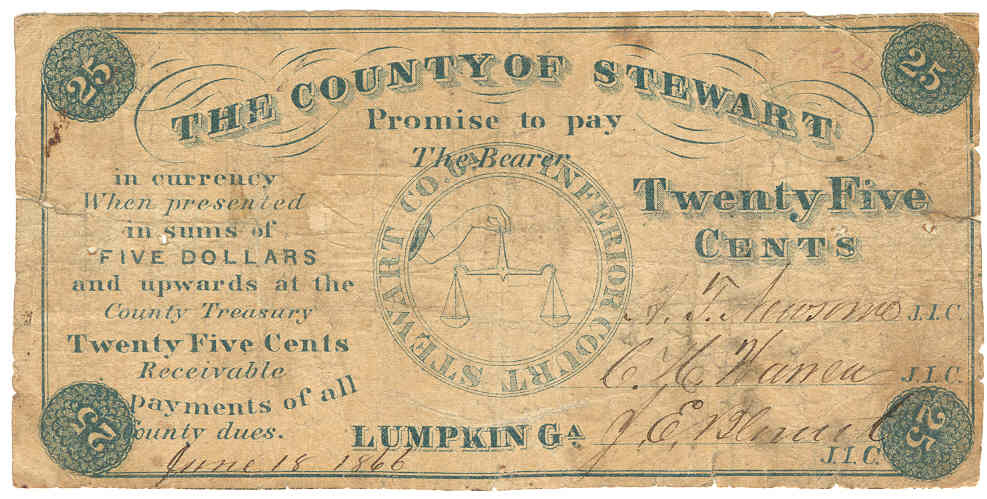 25
25
THE COUNTY OF STEWART
Promise to pay
The Bearer
in currency
When presented
in sums of
FIVE DOLLARS
and upwards at the
County Treasury
Twenty Five Cents
Receivable
payments of all
County dues.
STEWART CO. GA. INFERIOR COURT
Twenty Five
CENTS
A. T. Newsome J.I.C.
C. H. Warren J.I.C.
J. E. J.I.C.
LUMPKIN GA
June 18 1866
25
25